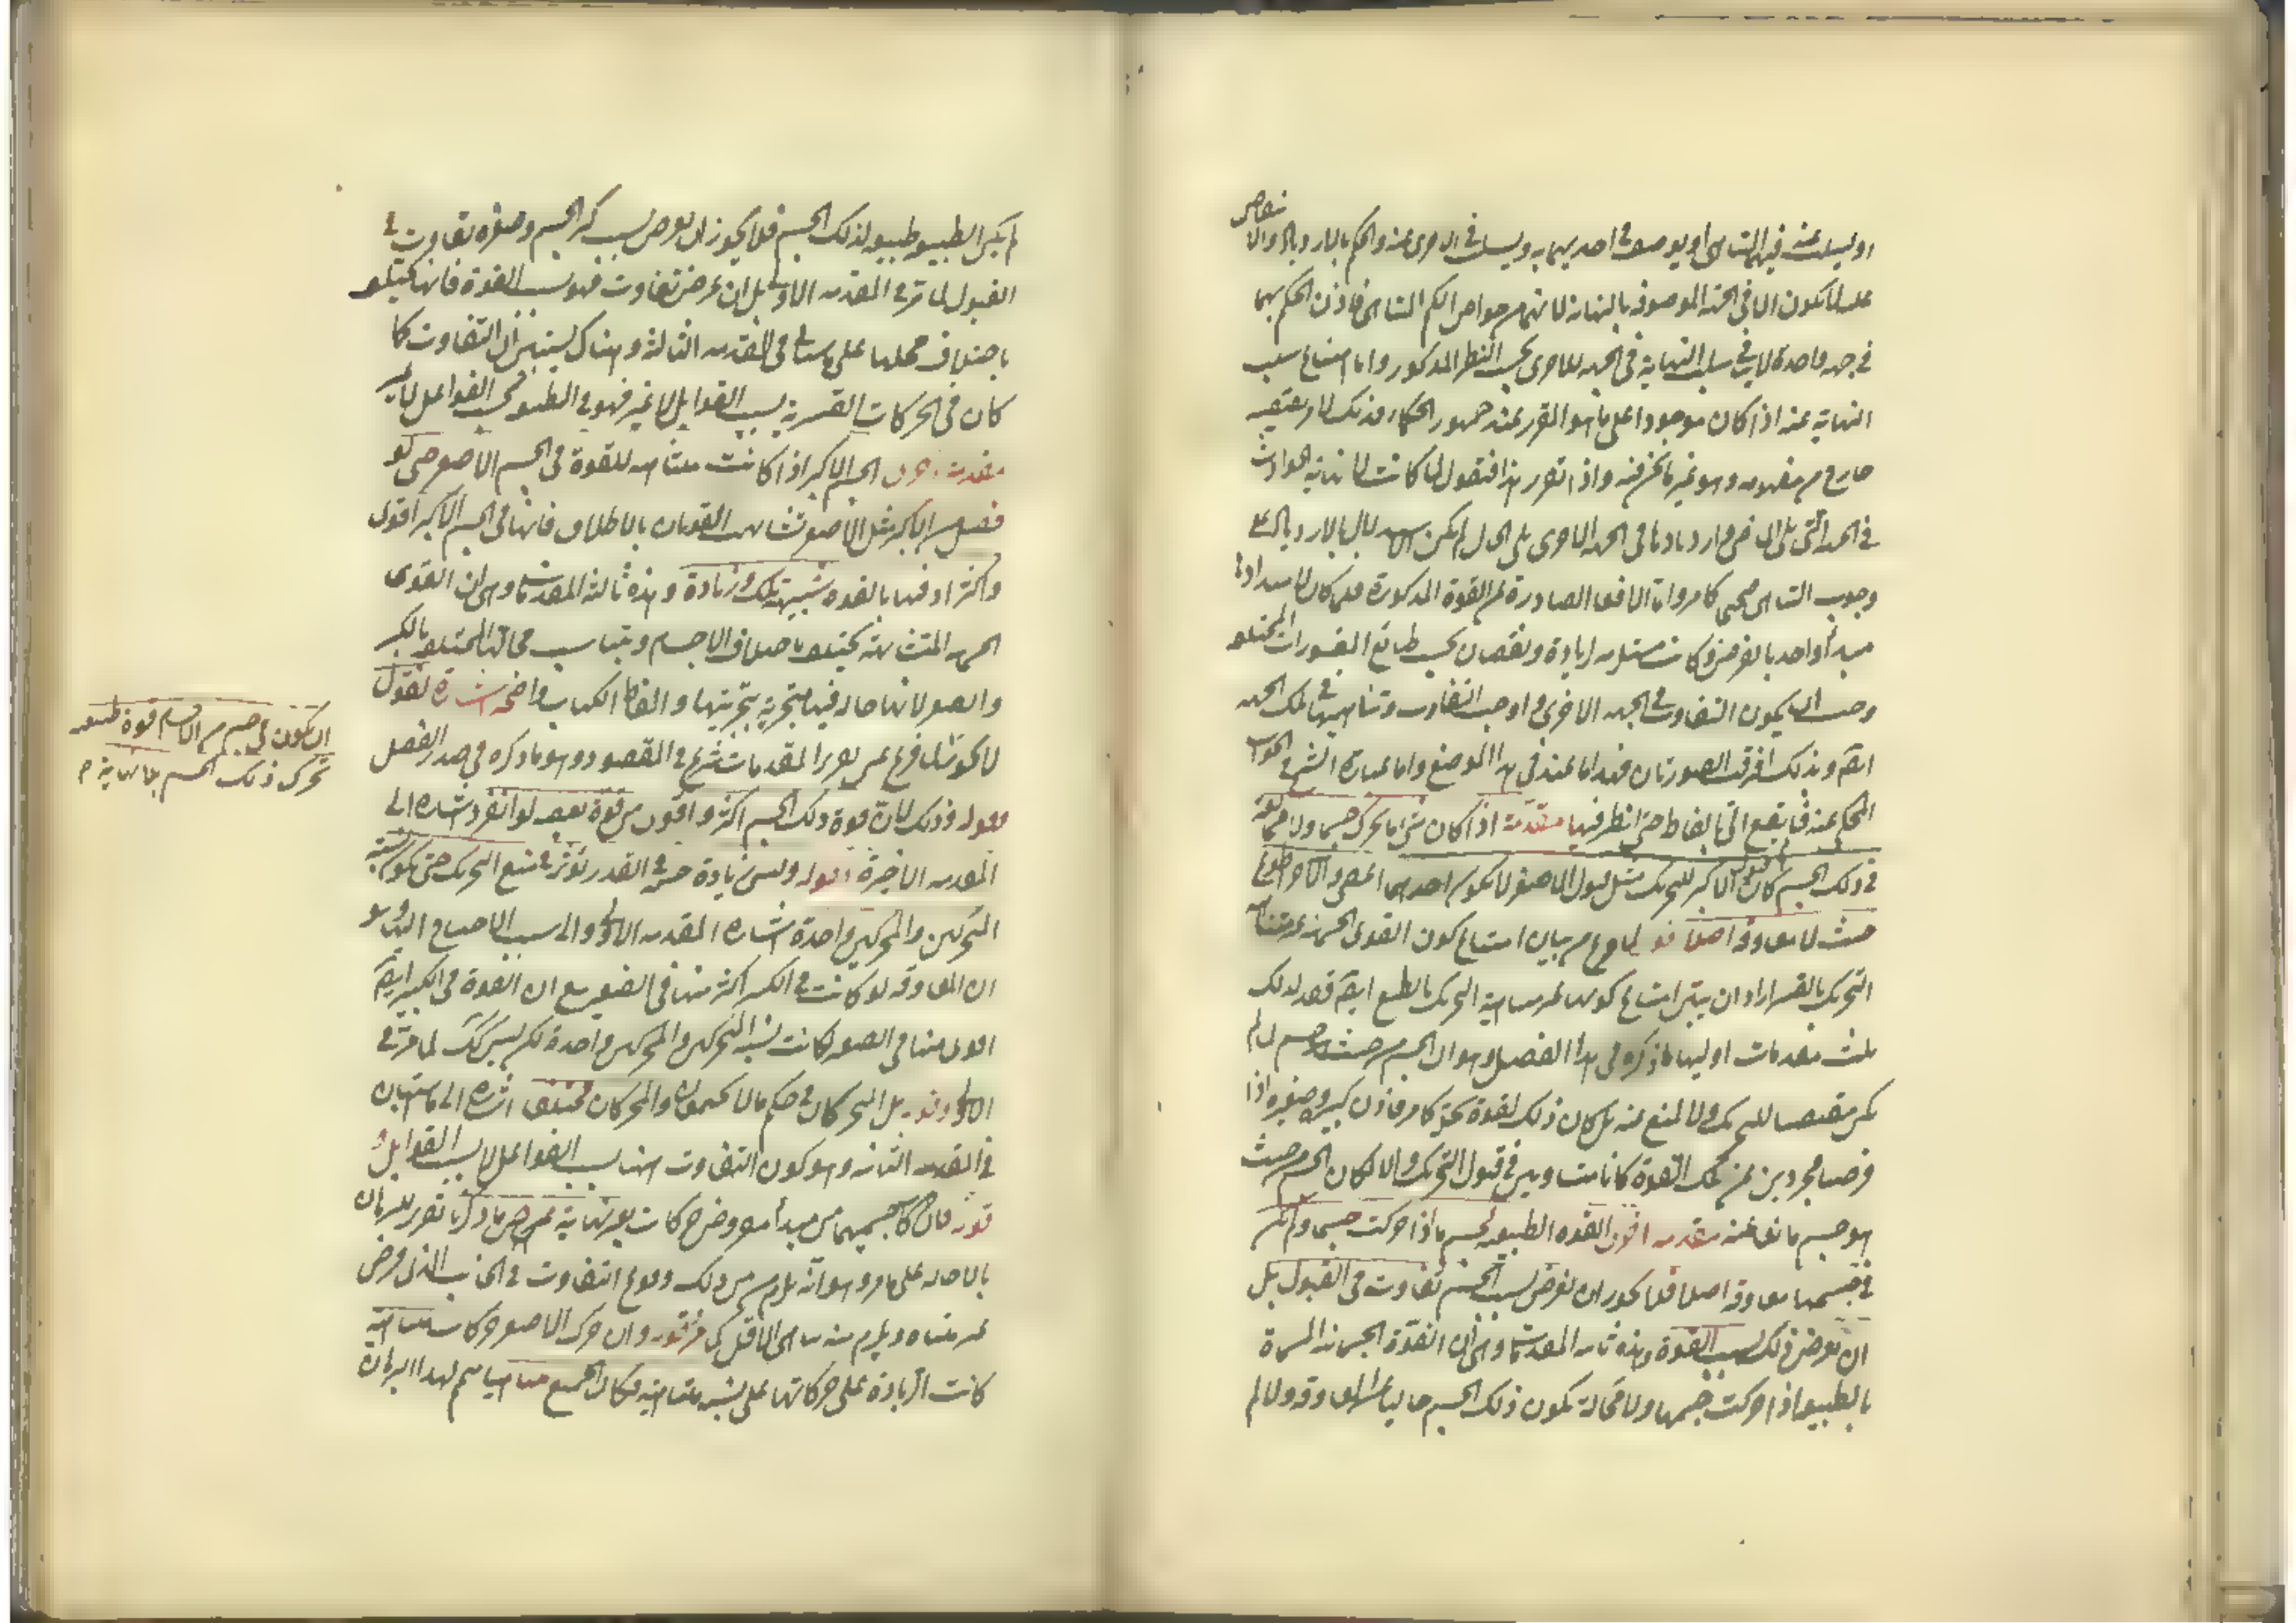 او يسلب عنه فيهما التناهي او يوصف في احديهما به ويسلب في الاخرى عنه والحكم بالازدياد والانتقاص
عليه لا يكون الا في الجهة الموصوفة بالنهاية لانهما من خواص الكم المتناهي فاذن الحكم بهما
في جهة واحدة لا ينافي سلب النهاية في الجهة الاخرى بحسب النظر المذكور واما امتناع سلب
النهاية عنه اذا كان موجودا على ما هو المقرر عند جمهور الحكماء فذلك لامر يقتضيه
خارج من مفهومه وهو غير ما نحن فيه واذا تقرر هذا فنقول لما كانت لا نهاية الحوادث
في الجهة التي تلي الماضي وازديادها في الجهة الاخرى التي تلي الحال لم يكن الاستدلال بالازدياد على
وجوب التناهي صحيحا كما مر واما الافعال الصادرة عن القوة المذكورة فلما كان لامتدادها
مبدأ واحد بالفرض وكانت مستلزمة لزيادة ونقصان بحسب طبائع المقسورات المختلفة
وجب ان يكون التفاوت في الجهة الاخرى واوجب التفاوت تناهيها في تلك الجهة
ايضا وبذلك افترقت الصورتان فهذا ما عندي في هذا الموضع واما عبارة الشيخ في الجواب
المحكي عنه فما يقع الي بالفاظه حتى انظر فيها مقدمة اذا كان شيء ما يحرك جسما ولا ممانعة
في ذلك الجسم كان قبول الاكبر للتحريك مثل قبول الاصغر لا يكون احدهما اعصى والآخر اطوع
حيث لا معاوقة اصلا لما فرغ من بيان امتناع كون القوى الجسمانية غير متناهية
التحريك بالقسر اراد ان يبين امتناع كونها غير متناهية التحريك بالطبع ايضا فقدم لذلك
ثلث مقدمات اوليها ما ذكره في هذا الفصل وهو ان الجسم من حيث هو جسم لما لم
يكن مقتضيا للتحريك ولا لمنع عنه بل كان ذلك لقوة تحله كما مر فاذن كبيره وصغيره اذا
فرضا مجردين عن تلك القوة كانا متساويين في قبول التحريك والا لكان الجسم من حيث
هو جسم مانعا عنه مقدمة اخرى القوة الطبيعية لجسم ما اذا حركت جسمها ولم يكن
في جسمها معاوقة اصلا فلا يجوز ان يعرض بسبب الجسم تفاوت في القبول بل
ان يعرض ذلك بسبب القوة وهذه ثانية المقدمات وهي ان القوة الجسمانية المسماة
بالطبيعة اذا حركت جسمها ولا محالة يكون ذلك الجسم خاليا عن المعاوقة والا لم
لم يكن الطبيعة طبيعة لذلك الجسم فلا يجوز ان يعرض بسبب كبر الجسم وصغره تفاوت في
القبول لما مر في المقدمة الاولى بل ان عرض تفاوت فهو بسبب القوة فانها تختلف
باختلاف محلها على ما سيأتي في المقدمة الثالثة وهناك يستبين ان التفاوت كما
كان في الحركات القسرية بسبب القوابل لا غير فهو في الطبيعية بحسب الفواعل لا غير
مقدمة اخرى الجسم الاكبر اذا كانت مشابهة للقوة في الجسم الاصغر حتى لو
فصل من الاكبر مثل الاصغر تشابهت القوتان بالاطلاق فانها في الجسم الاكبر اقوى
واكثر اذ فيها بالقوة شبيهة تلك وزيادة وهذه ثالثة المقدمات وهي ان القوى
الجسمية المتشابهة تختلف باختلاف الاجسام وتتناسب محالها المختلفة بالكبر
والصغر لانها حالة فيها متجزئة بتجزئتها والفاظ الكتاب واضحة اشارة نقول
لا يجوز لما فرغ عن تقرير المقدمات شرع في المقصود وهو ما ذكره في صدر الفصل
قوله وذلك لان قوة ذلك الجسم اكثر واقوى من قوة بعضه لو انفرد اشارة الى
المقدمة الاخيرة قوله وليس زيادة جسمه في القدر تؤثر في منع التحريك حتى يكون نسبة
المتحركين والمحركين واحدة اشارة الى المقدمة الاولى والى سبب الاحتياج اليها وهو
ان المعاوقة لو كانت في الكبير اكثر منها في الصغير مع ان القوة في الكبير ايضا
اقوى منها في الصغير لكانت نسبة المتحركين والمحركين واحدة لكن ليس كذلك لما مر في
الاولى وقوله بل المتحركان في حكم ما لا يختلفان والمحركان مختلفان اشارة الى ما استبان
في المقدمة الثانية وهو كون التفاوت ههنا بسبب الفواعل لا بسبب القوابل و
قوله فان حركا جسميهما من مبدأ مفروض حركات بغير نهاية عرض ما ذكرنا تقرير للبرهان
بالاحالة على ما مر وهو انه يلزم من ذلك وقوع التفاوت في الجانب الذي فرض
غير متناه ويلزم منه تناهي الاقل كما مر قوله وان حرك الاصغر حركات متناهية
كانت الزيادة على حركاتها على نسبة متناهية فكان الجميع متناهيا تتميم لهذا البرهان
ان يكون في جسم من الاجسام قوة طبيعية
تحرك ذلك الجسم بلا نهاية م